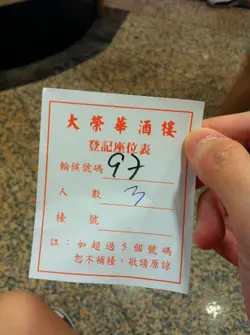 大榮華酒樓
登記座位表
輪候號碼 97
人 數 3
檯 號
註：如超過5個號碼
恕不補檯，敬請原諒